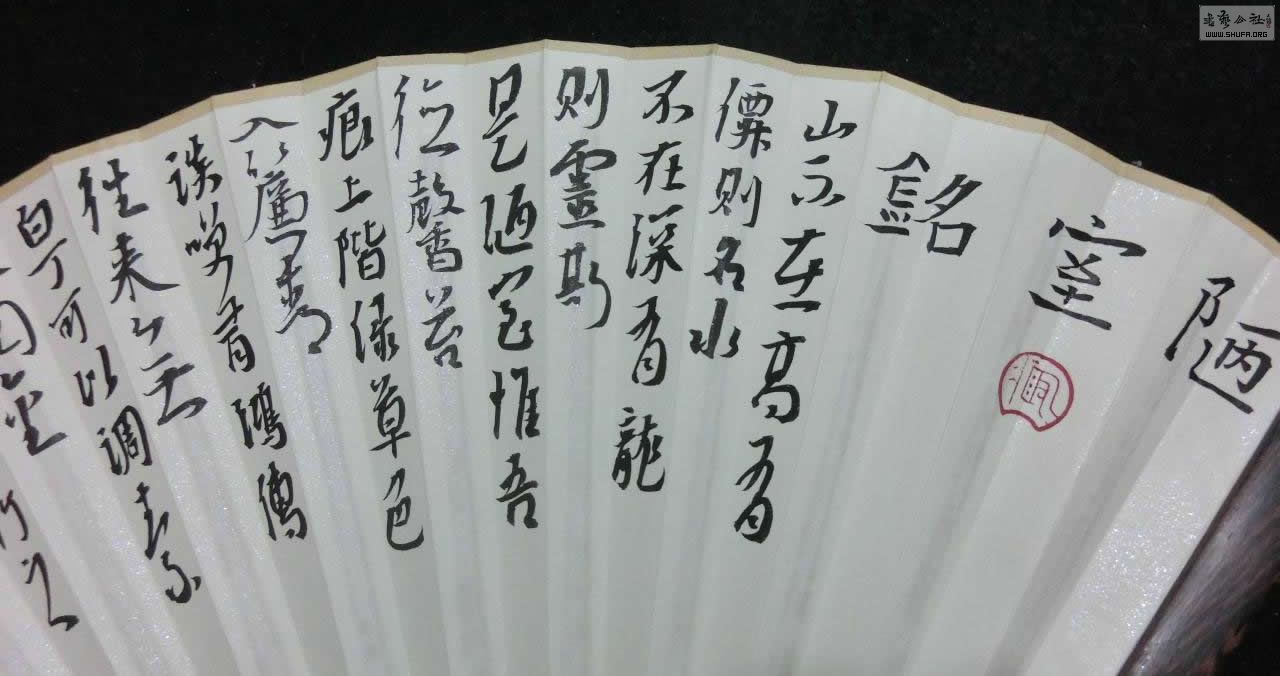 陋
室
銘
山不在高有
僊則名水
不在深有龍
則靈斯
是陋室惟吾
德馨苔
痕上階緑草色
入簾青
談笑有鴻儒
往來無
白丁可以調素
金
竹之
書藝公社
WWW.SHUFA.ORG